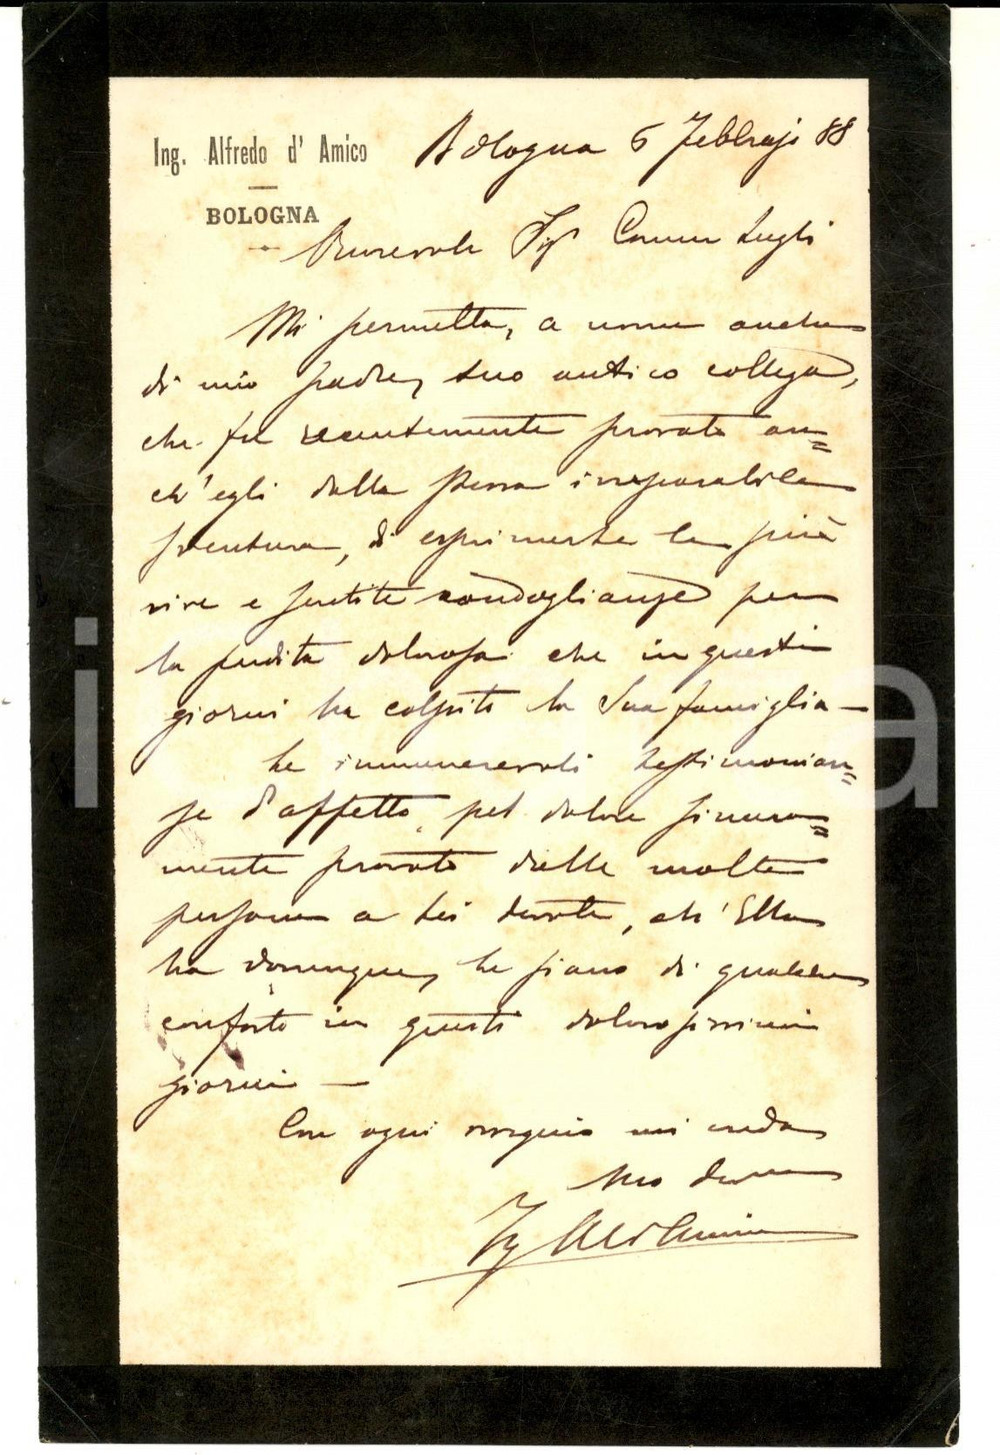 Ing. Alfredo d' Amico
BOLOGNA
Bologna 6 Febbrajo 88
Onorevole Sigr Comm Lugli
Mi permetta, a nome anche
di mio padre, suo antico collega,
che fu recentemente provato an=
ch'egli dalla stessa irreparabile
sventura, di esprimerle le più
vive e sentite condoglianze per
la perdita dolorosa che in questi
giorni ha colpito la Sua famiglia -
Le innumerevoli testimonian=
ze d'affetto, pel dolore sincera=
mente provato dalle molte
persone a Lei devote, ch'Ella
ha dovunque, le siano di qualche
conforto in questi dolorosissimi
giorni -
Con ogni ossequio mi creda
Suo devmo
Ing Alf d'Amico